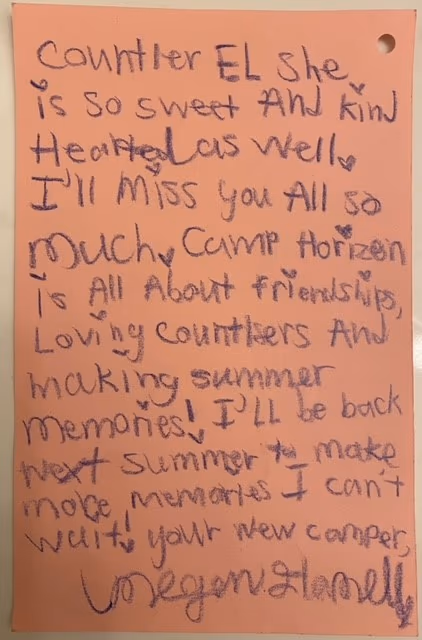 Countler EL she
is so sweet And kind
Hearted as well.
I'll Miss you All so
much, Camp Horizen
is All About friendships,
Loving countlsers And
making summer
memories! I'll be back
next summer to make
more memories I can't
wait! your new camper,
Megan